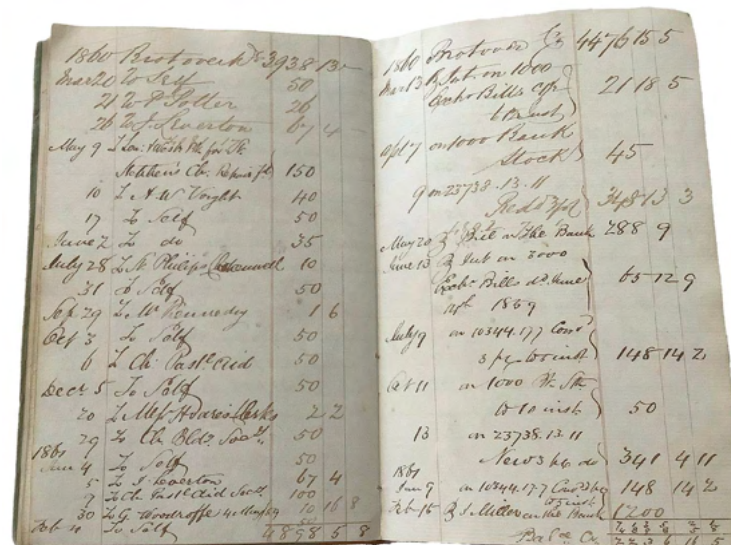 1860 Brot over Dr 3938 13 -
Mar 20 To Self 50
21 To P Potter 26
26 To J. Leverton 67 4 -
May 9 To Lon: & West Bk for St.
Matthew's Ch. Repair fd 150
10 To A. W Voight 40
17 To Self 50
June 2 To do 35
July 28 To St Philips 10
31 To Self 50
Sep 29 To Mr Kennedy 1 6
Oct 3 To Self 50
6 To Ch: Past: Aid 50
Decr 5 To Self 50
20 To 2 2
29 To Ch Bldg Socy. 50
1861
Jan 4 To Self 50
5 To J. Leverton 67 4
9 To Ch: Past: Aid Socy. 100
30 To G. Woodroffe 10 16 8
Feb To Self
4898 5 8
1860 Brot over Cr 4476 15 5
Mar 13 By Int on 1000
Exch Bills 21 18 5
Apl 7 on 1000 Bank
Stock 45
9 on 23738.13.11
Redd 3 p 348 13 3
May 20 By Bill on the Bank 288 9
June 13 By Int on 3000
Exch. Bills dd June 65 12 9
1859
July 9 on 10344.17.7 Cons
3 p to inst 148 14 2
Oct 11 on 1000 Bk Stk
to 10 inst. 50
13 on 23738.13.11
New 3 p 341 4 11
1861
Jan 9 on 10344.17.7 Cons 3 p 148 14 2
to inst
Feb 15 By J. Miller on the Bank 1200
Bal ce Cr 2236 16 5